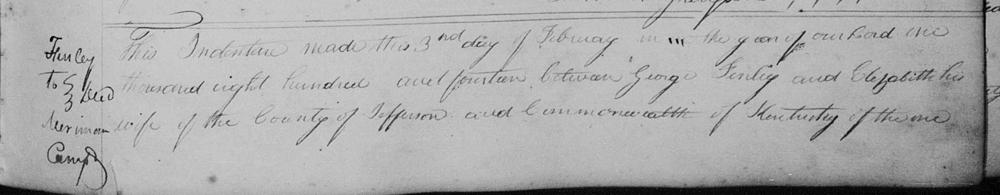 Finley
To
Deed
Merriman
Camp
This Indenture made this 3rd day of February in the year of our Lord one
thousand eight hundred and fourteen between George Finley and Elizabeth his
wife of the County of Jefferson and Commonwealth of Kentucky of the one